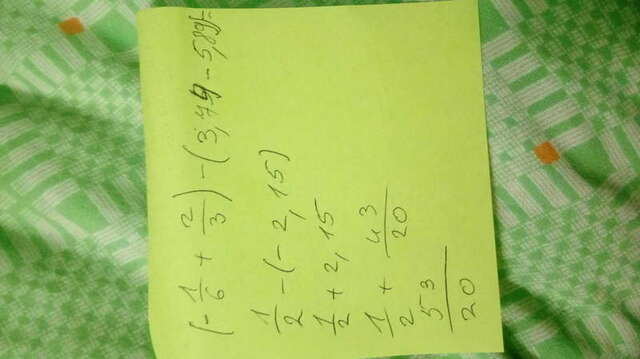 (- 1/6 + 2/3) - (3,74 - 5,89)=
1/2 - (- 2,15)
1/2 + 2,15
1/2 + 43/20
53/20